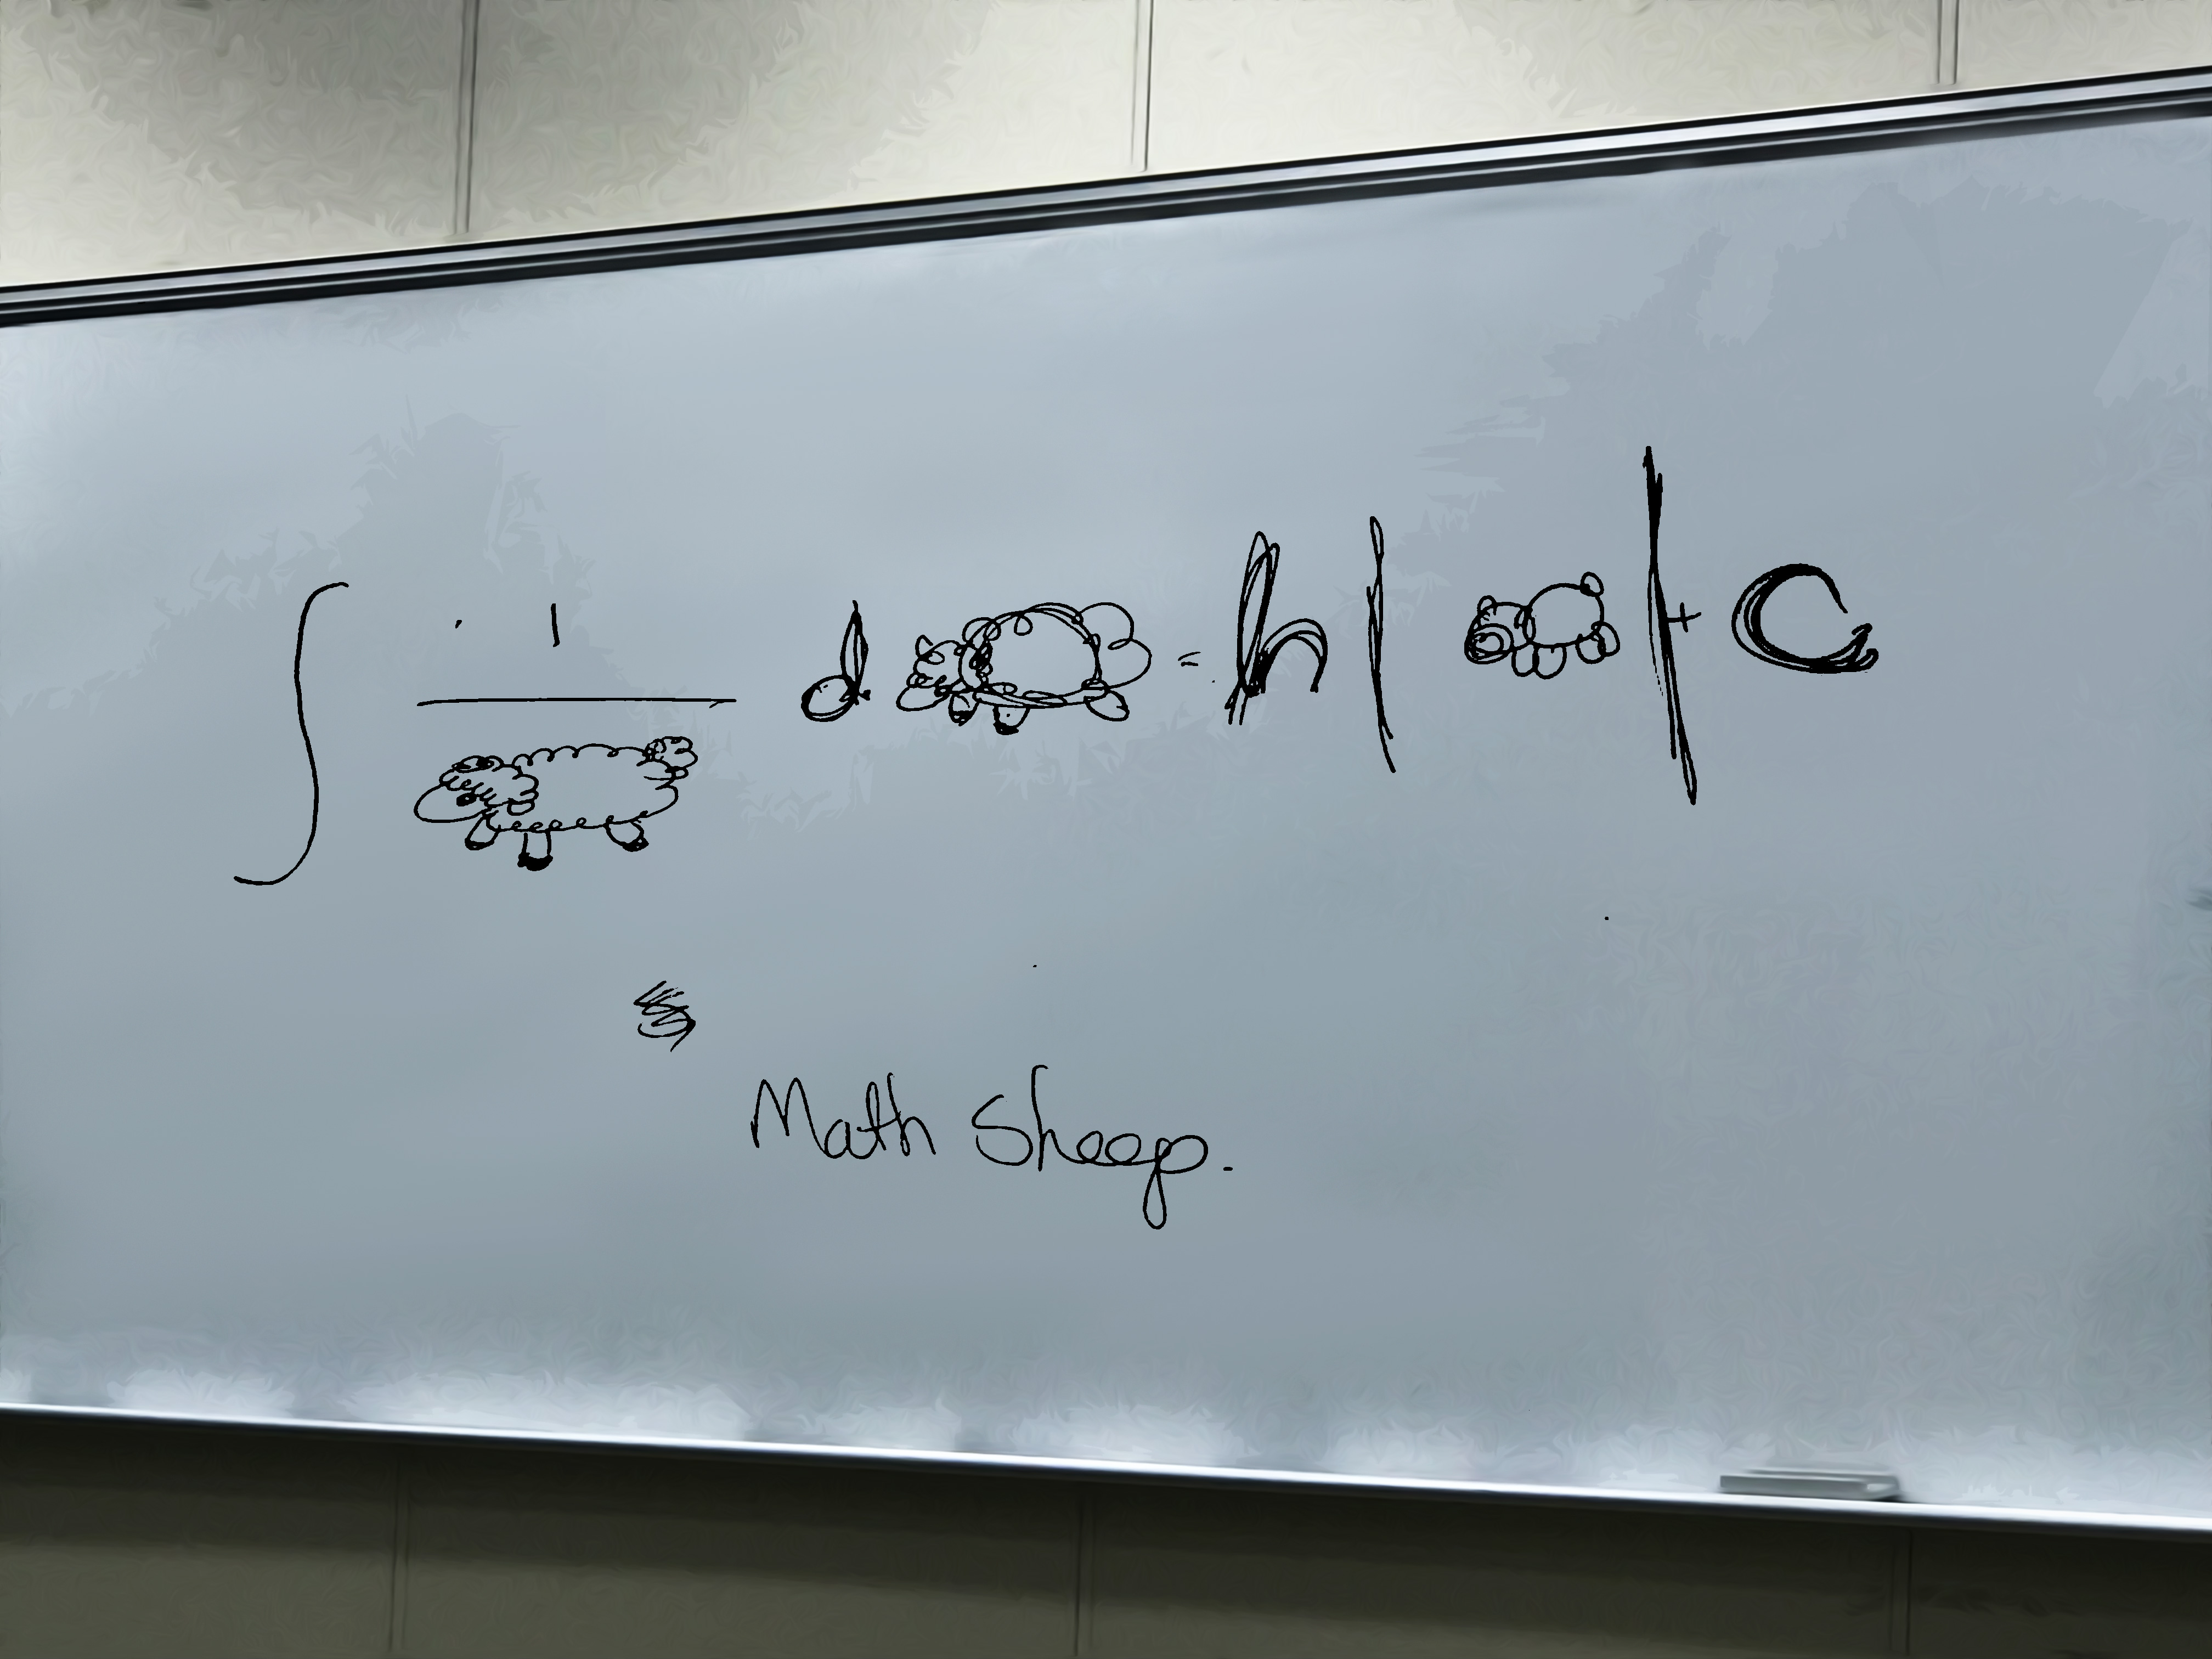 ∫ 1/🐑 d🐑 = ln|🐑| + C
Math Sheep.